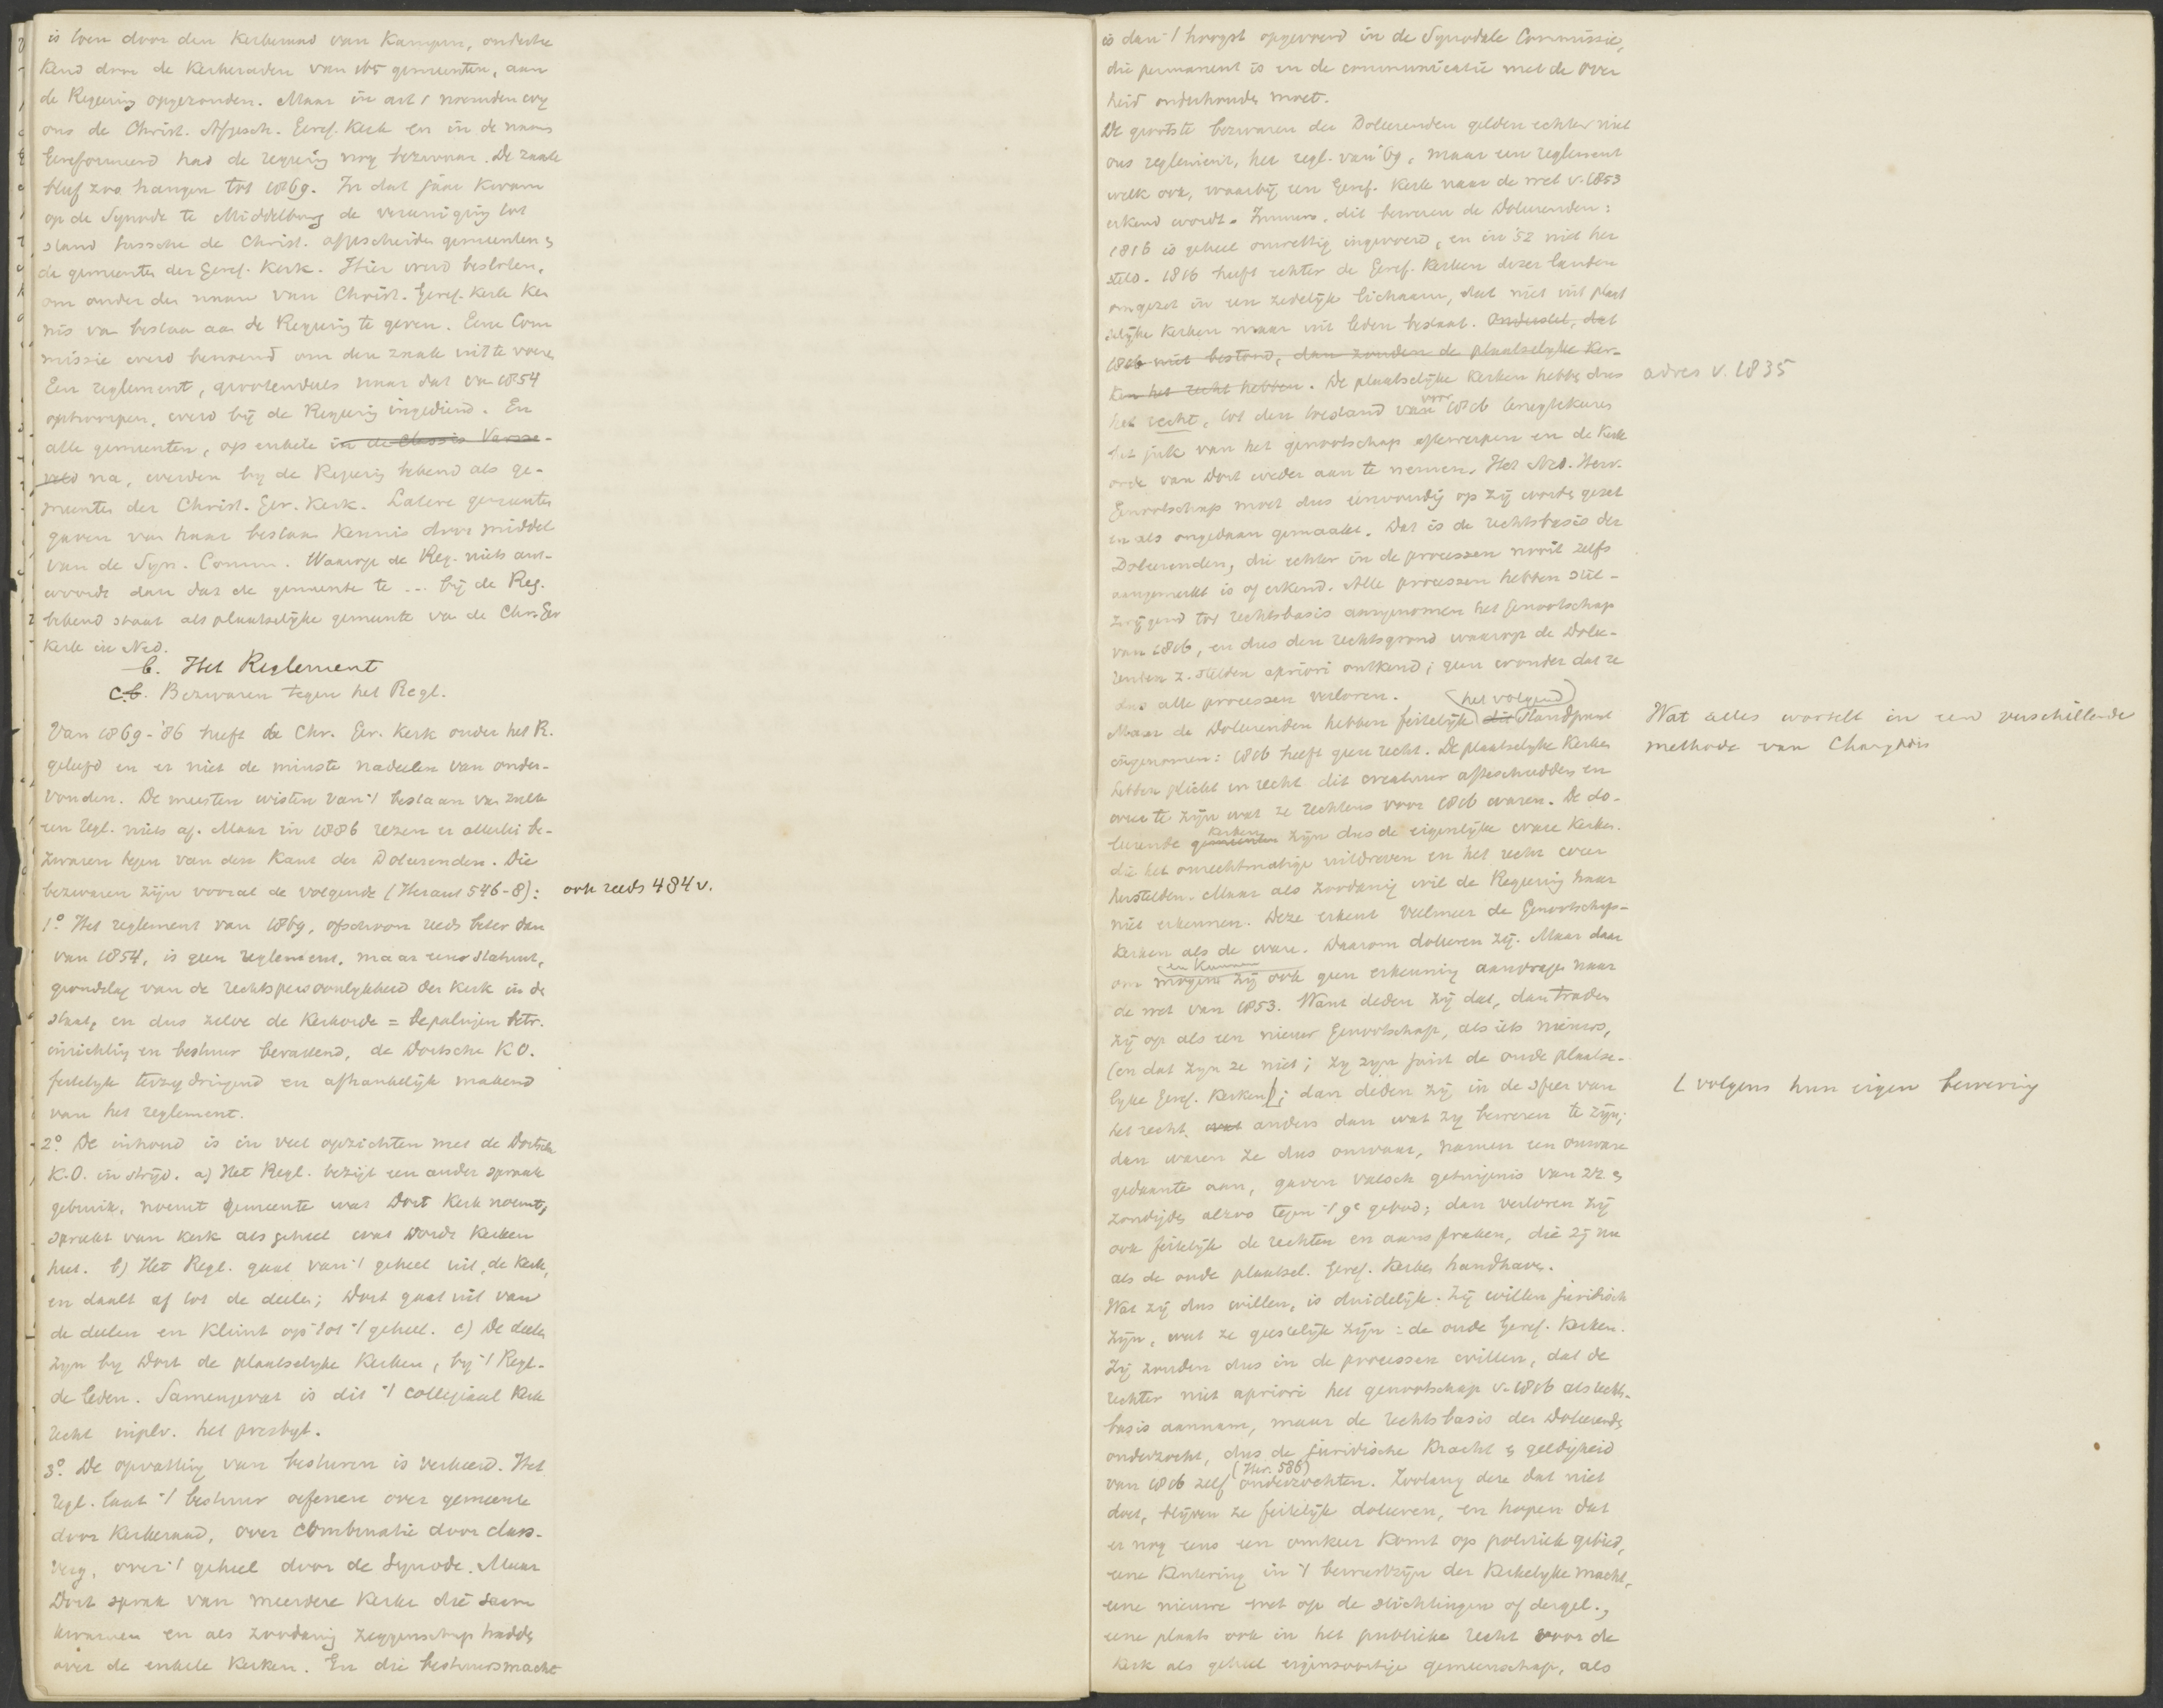 is toen door den Kerkeraad van Kampen, onderte
kend door de Kerkeraden van 165 gemeenten, aan
de Regering opgezonden. Maar in art 1 noemden wij
ons de Christ. Afgesch. Geref. Kerk en in de naam
Gereformeerd had de regering nog bezwaar. De zaak
bleef zoo hangen tot 1869. In dat jaar kwam
op de Synode te Middelburg de vereeniging tot
stand tussche de Christ. afgescheiden gemeenten &
de gemeenten der Geref. Kerk. Hier werd besloten,
om onder den naam van Christ. Geref. Kerk ken
nis van bestaan aan de Regering te geven. Eene Com
missie werd benoemd om deze zaak uit te voeren
Een reglement, grootendeels naar dat van 1854
ontworpen, werd bij de Regering ingediend. En
alle gemeenten, op enkele in de Classis Varsse-
veld na, werden bij de Regering bekend als ge-
meenten der Christ. Ger. Kerk. Latere gemeenten
gaven van haar bestaan kennis door middel
van de Syn. Comm. Waarop de Reg. niets ant-
woordt dan dat de gemeente te ... bij de Reg.
bekend staat als plaatselijke gemeente van de Chr. Ger
Kerk in Ned.
b. Het Reglement
c. b. Bezwaren tegen het Regl.
Van 1869-'86 heeft de Chr. Ger. Kerk onder het R.
geleefd en er niet de minste nadeelen van onder-
vonden. De meesten wisten van 't bestaan van zulk
een regl. niets af. Maar in 1886 rezen er allerlei be-
zwaren tegen van den kant der Doleerenden. Die
bezwaren zijn vooral de volgende (Heraut 546-8): ook reeds 484 v.
1° Het reglement van 1869, ofschoon reeds beter dan
van 1854, is geen reglement, maar een statuut,
grondslag van de rechtspersoonlijkheid der kerk in de
staat, en dus zelve de kerkorde = bepalingen betr.
inrichting en bestuur bevattend, de Dortsche K.O.
feitelijk terzijdringend en afhankelijk makend
van het reglement.
2° De inhoud is in veel opzichten met de Dortsche
K.O. in strijd. a) Het Regl. bezigt een ander spraak
gebruik, noemt gemeente wat Dort kerk noemt,
spreekt van kerk als geheel wat Dordt kerken
heet. b) Het Regl. gaat van 't geheel uit, de kerk,
en daalt af tot de deelen; Dort gaat uit van
de deelen en klimt op tot 't geheel. c) De deelen
zijn bij Dort de plaatselijke kerken, bij 't Regl.
de leden. Samengevat is dit 't collegiaal kerk
recht inplv. het presbyt.
3° De opvatting van besturen is verkeerd. Het
regl. laat 't bestuur oefenen over gemeente
door kerkeraad, over combinatie door class-
verg, over 't geheel door de Synode. Maar
Dort sprak van meerdere kerken die saam
kwamen en als zoodanig zeggenschap hadden
over de enkele kerken. En die bestuursmacht
is dan 't hoogst opgevoerd in de Synodale Commissie,
die permanent is en de communicatie met de Over
heid onderhouden moet.
De grootste bezwaren der Doleerenden gelden echter niet
ons reglement, het regl. van '69, maar een reglement
welk ook, waarbij een Geref. Kerk naar de wet v. 1853
erkend wordt. Immers, dit beweren de Doleerenden:
1816 is geheel onwettig ingevoerd, en in '52 niet her
steld. 1816 heeft echter de Geref. Kerken dezer landen
omgezet in een zedelijk lichaam, dat niet uit plaat
selijke kerken maar uit leden bestaat. Ondersteld, dat
1816 niet bestond, dan zouden de plaatselijke ker-
ken het recht hebben. De plaatselijke kerken hebben dus adres v. 1835
het recht, tot den toestand van voor 1816 terugtekeeren
het juk van het genootschap aftewerpen en de kerk
orde van Dort weder aan te nemen. Het Ned. Herv.
Genootschap moet dus eenvoudig op zij worden gezet
en als ongedaan gemaakt. Dat is de rechtsbasis der
Doleerenden, die echter in de processen nooit zelfs
aangemerkt is of erkend. Alle processen hebben stil-
zwijgend tot rechtsbasis aangenomen het Genootschap
van 1816, en dus den rechtsgrond waarop de Dolee-
renden z. stelden apriori ontkend; geen wonder dat ze
dus alle processen verloren.
Maar de Doleerenden hebben feitelijk dit (het volgend) standpunt Wat alles wortelt in een verschillende
ingenomen: 1816 heeft geen recht. De plaatselijke kerken methode van
hebben plicht en recht dit creatuur afteschudden en
weer te zijn wat ze rechtens voor 1816 waren. De do-
leerende gemeenten kerken zijn dus de eigenlijke ware kerken.
die het onrechtmatige uitdreven en het recht weer
herstelden. Maar als zoodanig wil de Regering haar
niet erkennen. Deze erkent veelmeer de Genootschaps-
kerken als de ware. Daarom doleeren zij. Maar daar
om mogen en kunnen zij ook geen erkenning aanvragen naar
de wet van 1853. Want deden zij dat, dan traden
zij op als een nieuw Genootschap, als iets nieuws,
(en dat zijn ze niet; zij zijn juist de oude plaatse-
lijke Geref. Kerken); dan deden zij in de sfeer van L volgens hun eigen bewering
het recht wat anders dan wat zij beweren te zijn;
dan waren ze dus onwaar, namen een onware
gedaante aan, gaven valsch getuigenis van zz &
zondigden alzoo tegen 't 9e gebod; dan verloren zij
ook feitelijk de rechten en aanspraken, die zij nu
als de oude plaatsel. Geref. Kerken handhaven.
Wat zij dus willen, is duidelijk. Zij willen juridisch
zijn, wat ze geestelijk zijn: de oude Geref. Kerken.
Zij zouden dus in de processen willen, dat de
rechter niet apriori het genootschap v. 1816 als rechts-
basis aannam, maar de rechtsbasis der Doleerenden
onderzocht, dus de juridische kracht & geldigheid
van 1816 zelf (Her. 586) onderzochten. Zoolang deze dat niet
doet, blijven ze feitelijk doleeren, en hopen dat
er nog eens een omkeer komt op politiek gebied,
eene kentering in 't bewustzijn der kerkelijke macht,
eene nieuwe wet op de stichtingen of dergel.,
eene plaats ook in het publieke recht voor de
kerk als geheel eigensoortige gemeenschap, als